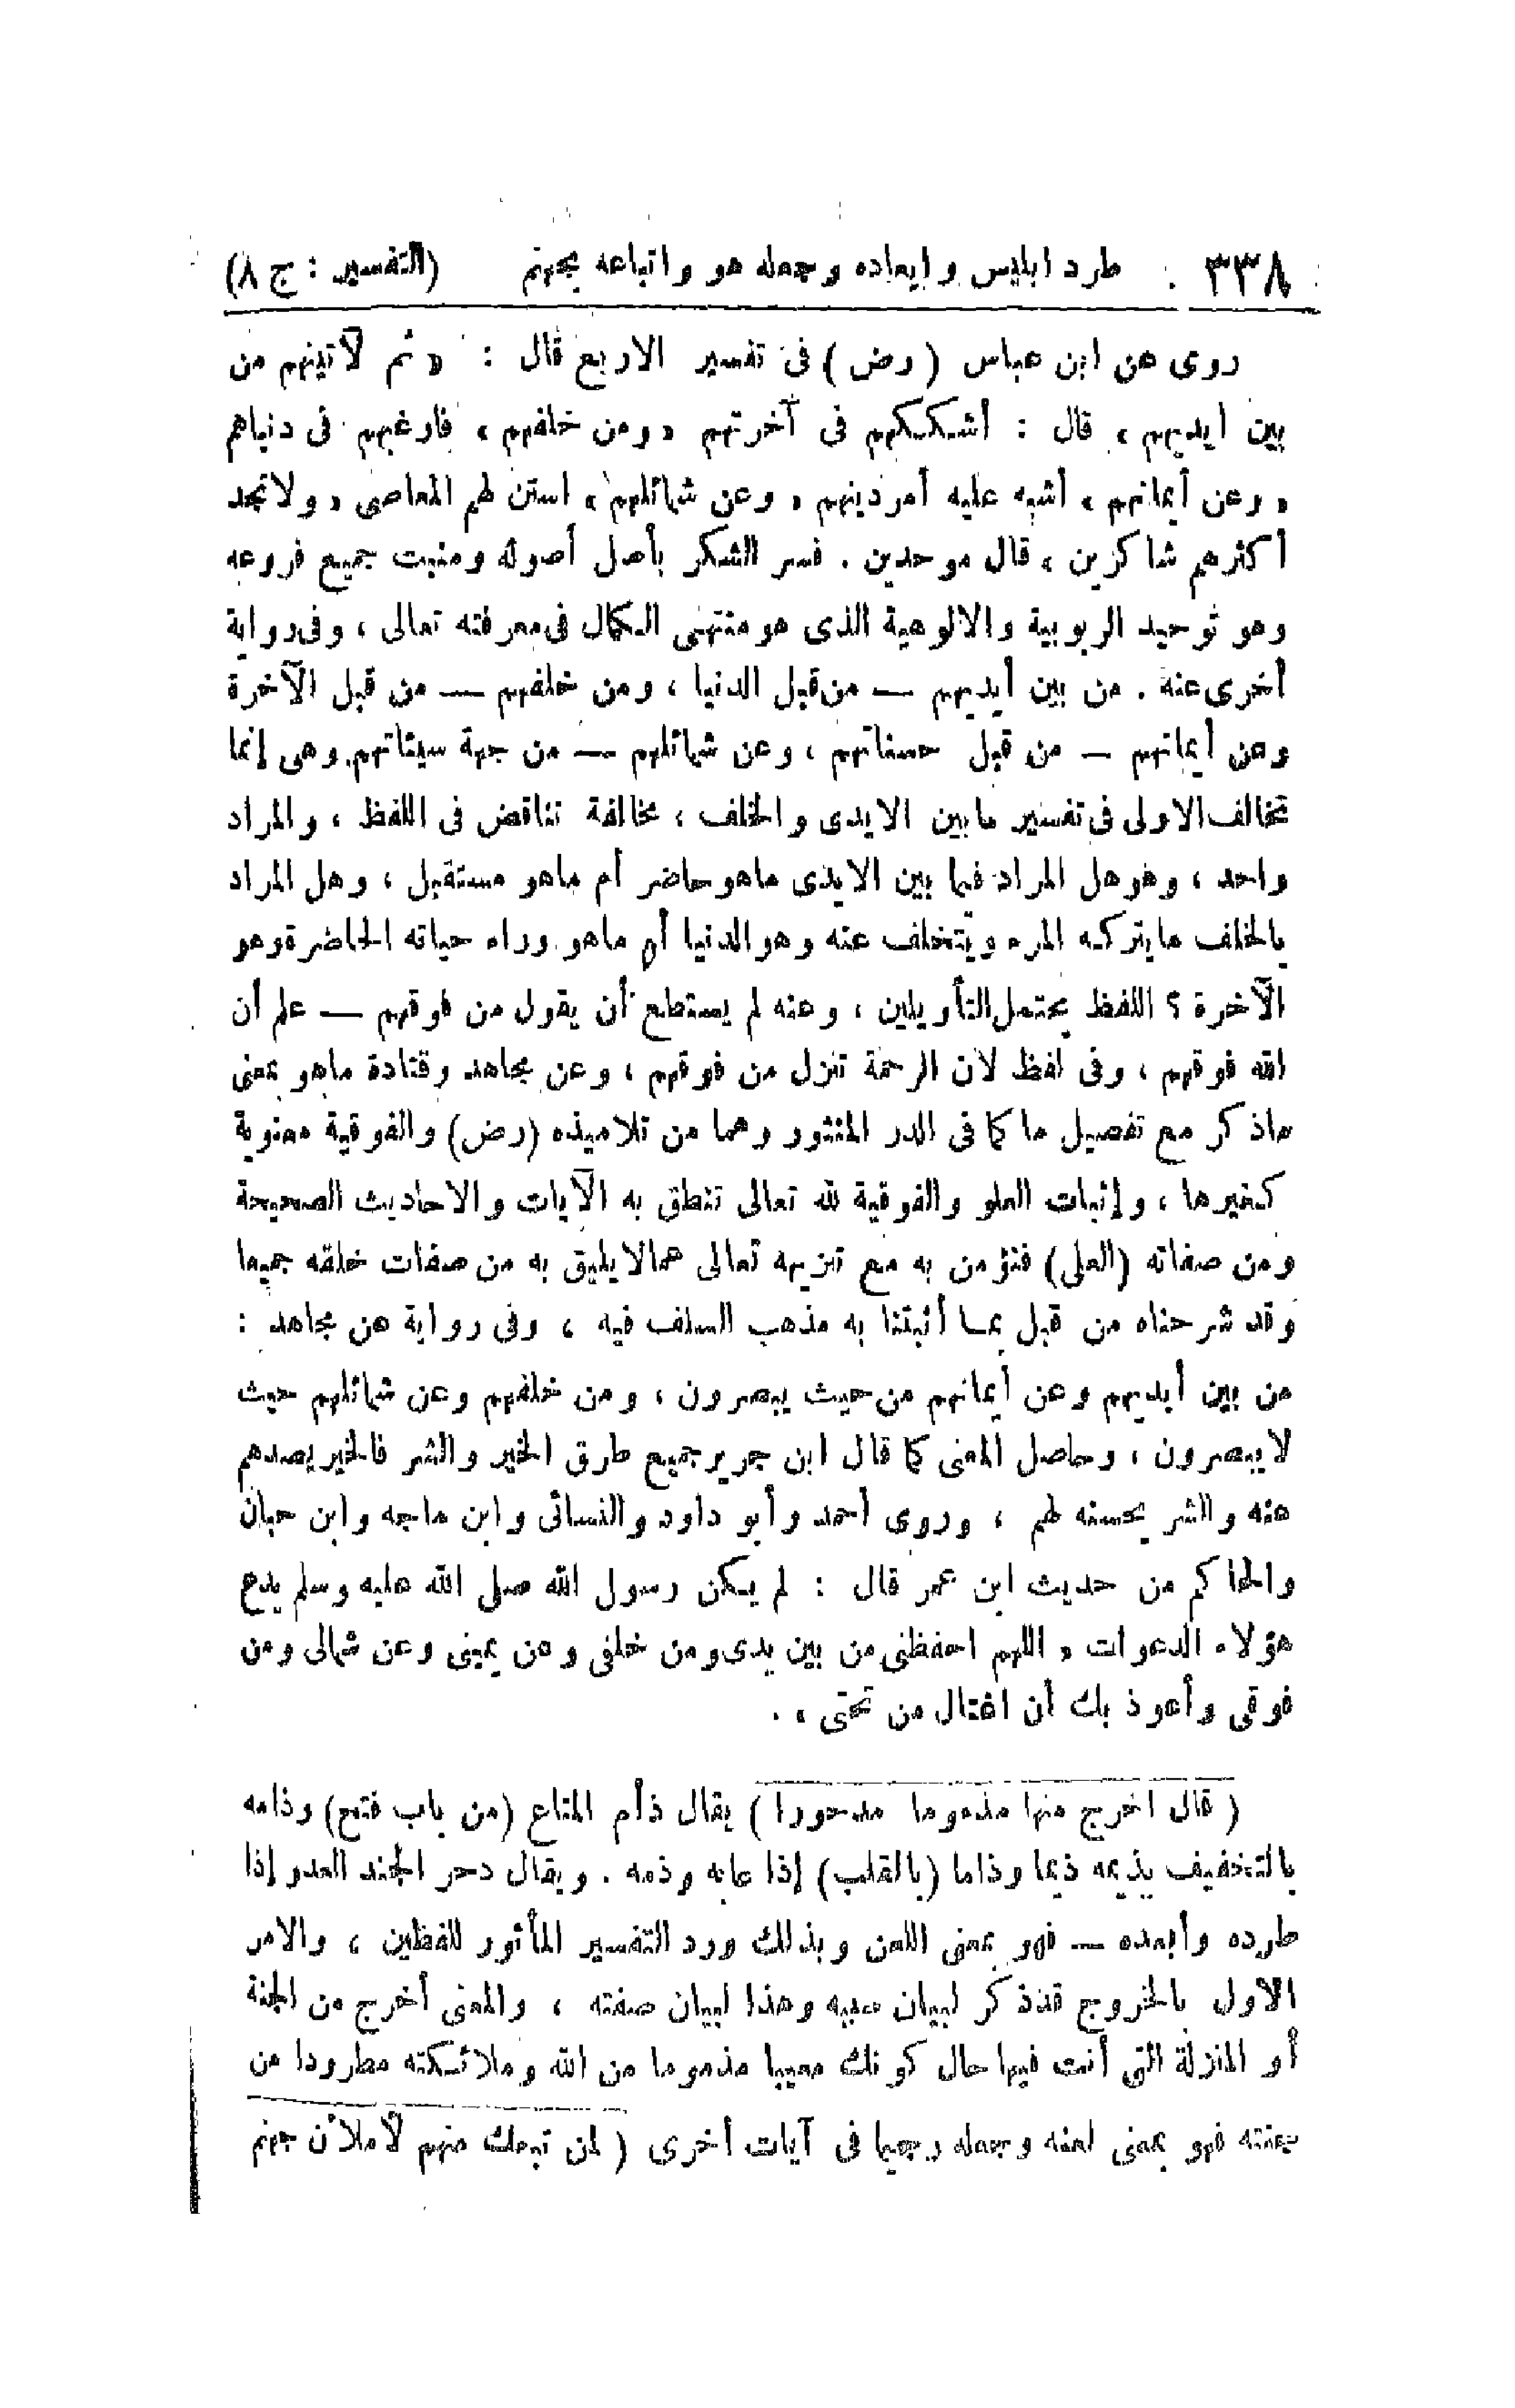 ٣٣٨ طرد ابليس وإبعاده وجعله هو واتباعه بجهنم (التفسير : ج ٨)
روى عن ابن عباس (رض) فى تفسير الاربع قال : « ثم لآتينهم من
بين ايديهم » قال : أشككهم فى آخرتهم « ومن خلفهم » فارغبهم فى دنياهم
« وعن أيمانهم » أشبه عليه أمر دينهم « وعن شمائلهم » استن لهم المعاصى « ولا تجد
أكثرهم شاكرين » قال موحدين . فسر الشكر بأصل أصوله ومنبت جميع فروعه
وهو توحيد الربوبية والالوهية الذى هو منتهى الكمال فى معرفته تعالى ، وفى رواية
أخرى عنه . من بين أيديهم — من قبل الدنيا ، ومن خلفهم — من قبل الآخرة
وعن أيمانهم — من قبل حسناتهم ، وعن شمائلهم — من جهة سيئاتهم. وهى إنما
تخالف الاولى فى تفسير ما بين الايدى والخلف ، مخالفة تناقض فى اللفظ ، والمراد
واحد ، وهو هل المراد فيما بين الايدى ماهو حاضر أم ماهو مستقبل ، وهل المراد
بالخلف ما يتركه المرء ويتخلف عنه وهو الدنيا أم ماهو وراء حياته الحاضرة وهو
الآخرة ؟ اللفظ يحتمل التأويلين ، وعنه لم يستطع أن يقول من فوقهم — علم أن
الله فوقهم ، وفى لفظ لان الرحمة تنزل من فوقهم ، وعن مجاهد وقتادة ماهو بمعنى
ماذكر مع تفصيل ما كما فى الدر المنثور وهما من تلاميذه (رض) والفوقية معنوية
كغيرها ، وإثبات العلو والفوقية لله تعالى تنطق به الآيات والاحاديث الصحيحة
ومن صفاته (العلى) فنؤمن به مع تنزيهه تعالى عمالا يليق به من صفات خلقه جميعا
وقد شرحناه من قبل بما أثبتنا به مذهب السلف فيه ، وفى رواية عن مجاهد :
من بين أيديهم وعن أيمانهم من حيث يبصرون ، ومن خلفهم وعن شمائلهم حيث
لا يبصرون ، وحاصل المعنى كما قال ابن جرير جميع طرق الخير والشر فالخير يصدهم
عنه والشر يحسنه لهم ، وروى أحمد وأبو داود والنسائى وابن ماجه وابن حبان
والحاكم من حديث ابن عمر قال : لم يكن رسول الله صلى الله عليه وسلم يدع
هؤلاء الدعوات « اللهم احفظنى من بين يدى ومن خلفى وعن يمينى وعن شمالى ومن
فوقى وأعوذ بك أن اغتال من تحتى » .
( قال اخرج منها مذءوما مدحورا ) يقال ذأم المتاع (من باب فتح) وذامه
بالتخفيف يذيمه ذيما وذاما (بالقلب) إذا عابه وذمه . ويقال دحر الجند العدو إذا
طرده وأبعده — فهو بمعنى اللعن وبذلك ورد التفسير المأثور للفظين ، والامر
الاول بالخروج قدذكر لبيان سببه وهذا لبيان صفته ، والمعنى أخرج من الجنة
أو المنزلة التى أنت فيها حال كونك معيبا مذموما من الله وملائكته مطرودا من
جنته فهو بمعنى لعنه وجعله رجيما فى آيات أخرى ( لمن تبعك منهم لأملأن جهنم